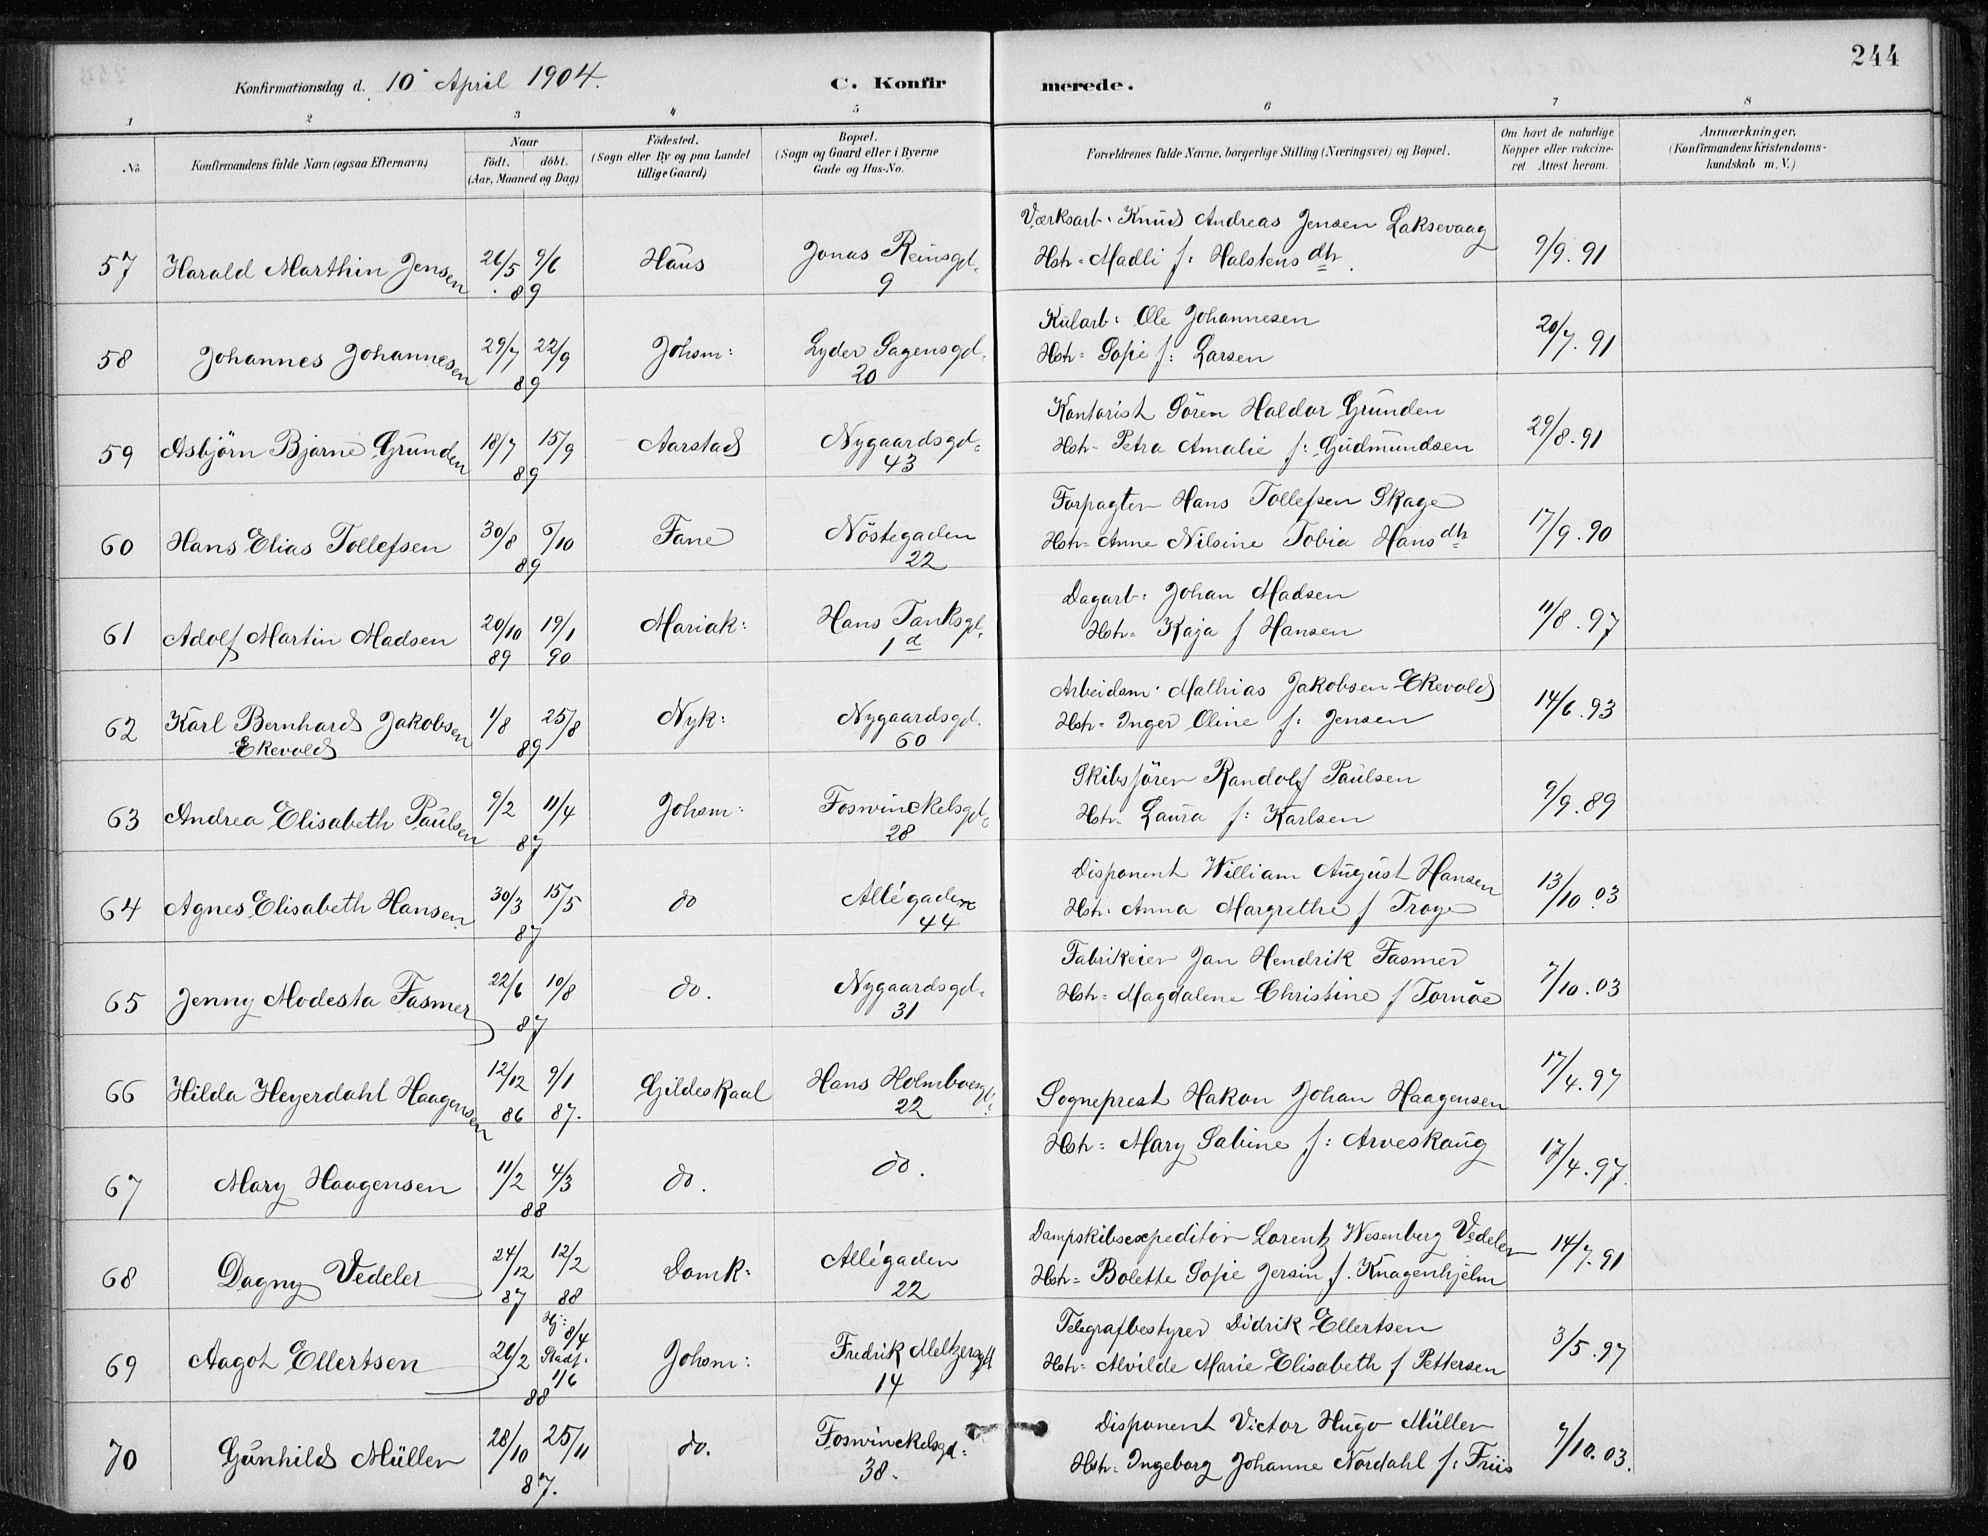 244
Konfirmationsdag d. 10 April 1904. C. Konfirmerede.
1 2 3 4 5 6 7 8
No. Konfirmandens fulde Navn (ogsaa Efternavn) Naar født. døbt. (Aar, Maaned og Dag) Fødested. (Sogn eller By og paa Landet tillige Gaard) Bopæl. (Sogn og Gaard eller i Byerne Gade og Hus-No. Forældrenes fulde Navne, borgerlige Stilling (Næringsvei) og Bopæl. Om havt de naturlige Kopper eller vakcineret. Attest herom. Anmærkninger. (Konfirmandens Kristendomskundskab m. V.)
57 Harald Marthin Jensen 26/5 9/6 89 Haus Jonas Reinsgd. 9 Værksarb. Knud Andreas Jensen Laksevaag 9/9.91
Hstr. Madli f: Halstensdtr.
58 Johannes Johannesen 29/7 22/9 89 Johsm: Lyder Sagensgd. 20 Kularb: Ole Johannesen 20/7.91
Hstr. Sofie f: Larsen
59 Asbjörn Bjarne Grunden 18/7 15/9 89 Aarstad Nygaardsgd. 43 Kontorist Sören Haldor Grunden 29/8.91
Hstr. Petra Amalie f: Gudmundsen
60 Hans Elias Tollefsen 30/8 6/10 89 Fane Nöstegaden 22 Forpagter Hans Tollefsen Skage 17/9.90
Hstr. Anne Nilsine Tobia Hansdtr
61 Adolf Martin Madsen 20/10 89 19/1 90 Mariak: Hans Tanksgd. 1 d Dagarb: Johan Madsen 11/8.97
Hstr. Kaja f Hansen
62 Karl Bernhard Jakobsen Ekevold 1/8 25/8 89 Nyk: Nygaardsgd. 60 Arbeidsm. Mathias Jakobsen Ekevold 14/6.93
Hstr. Inger Oline f: Jensen
63 Andrea Elisabeth Paulsen 9/2 11/4 87 Johsm: Foswinckelsgd. 28 Skibsförer Randolf Paulsen 9/9.89
Hstr. Laura f: Karlsen
64 Agnes Elisabeth Hansen 30/3 15/5 87 do Allégaden 44 Disponent William August Hansen 13/10.03
Hstr. Anna Margrethe f Troye
65 Jenny Modesta Fasmer 22/6 10/8 87 do. Nygaardsgd. 31 Fabrikeier Jan Hendrik Fasmer 7/10.03
Hstr. Magdalene Christine f Tornöe
66 Hilda Heyerdahl Haagensen 12/12 86 9/1 87. Gildeskaal Hans Holmboesgd. 22 Sogneprest Hakon Johan Haagensen 17/4.97
Hstr: Mary Sabine f: Arveskaug
67 Mary Haagensen 11/2 4/3 88 do. do. 17/4.97.
68 Dagny Vedeler 24/12 87 12/2 88 Domk: Allégaden 22 Dampskibsexpeditör Lorentz Wesenberg Vedeler 14/7.91
Hstr. Bolette Sofie Jersin f. Knagenhjelm
69 Aagot Ellertsen 26/2 Hj: 8/4 Stadf. 1/6 88 Johsm: Fredrik Meltzersgd 14 Telegrafbestyrer Didrik Ellertsen 3/5.97
Hstr. Alvilde Marie Elisabeth f Pettersen
70 Gunhild Müller 28/10 25/11 87. do. Foswinckelsgd. 38. Disponent Victor Hugo Müller 7/10.03.
Hstr. Ingeborg Johanne Nordahl f: Friis